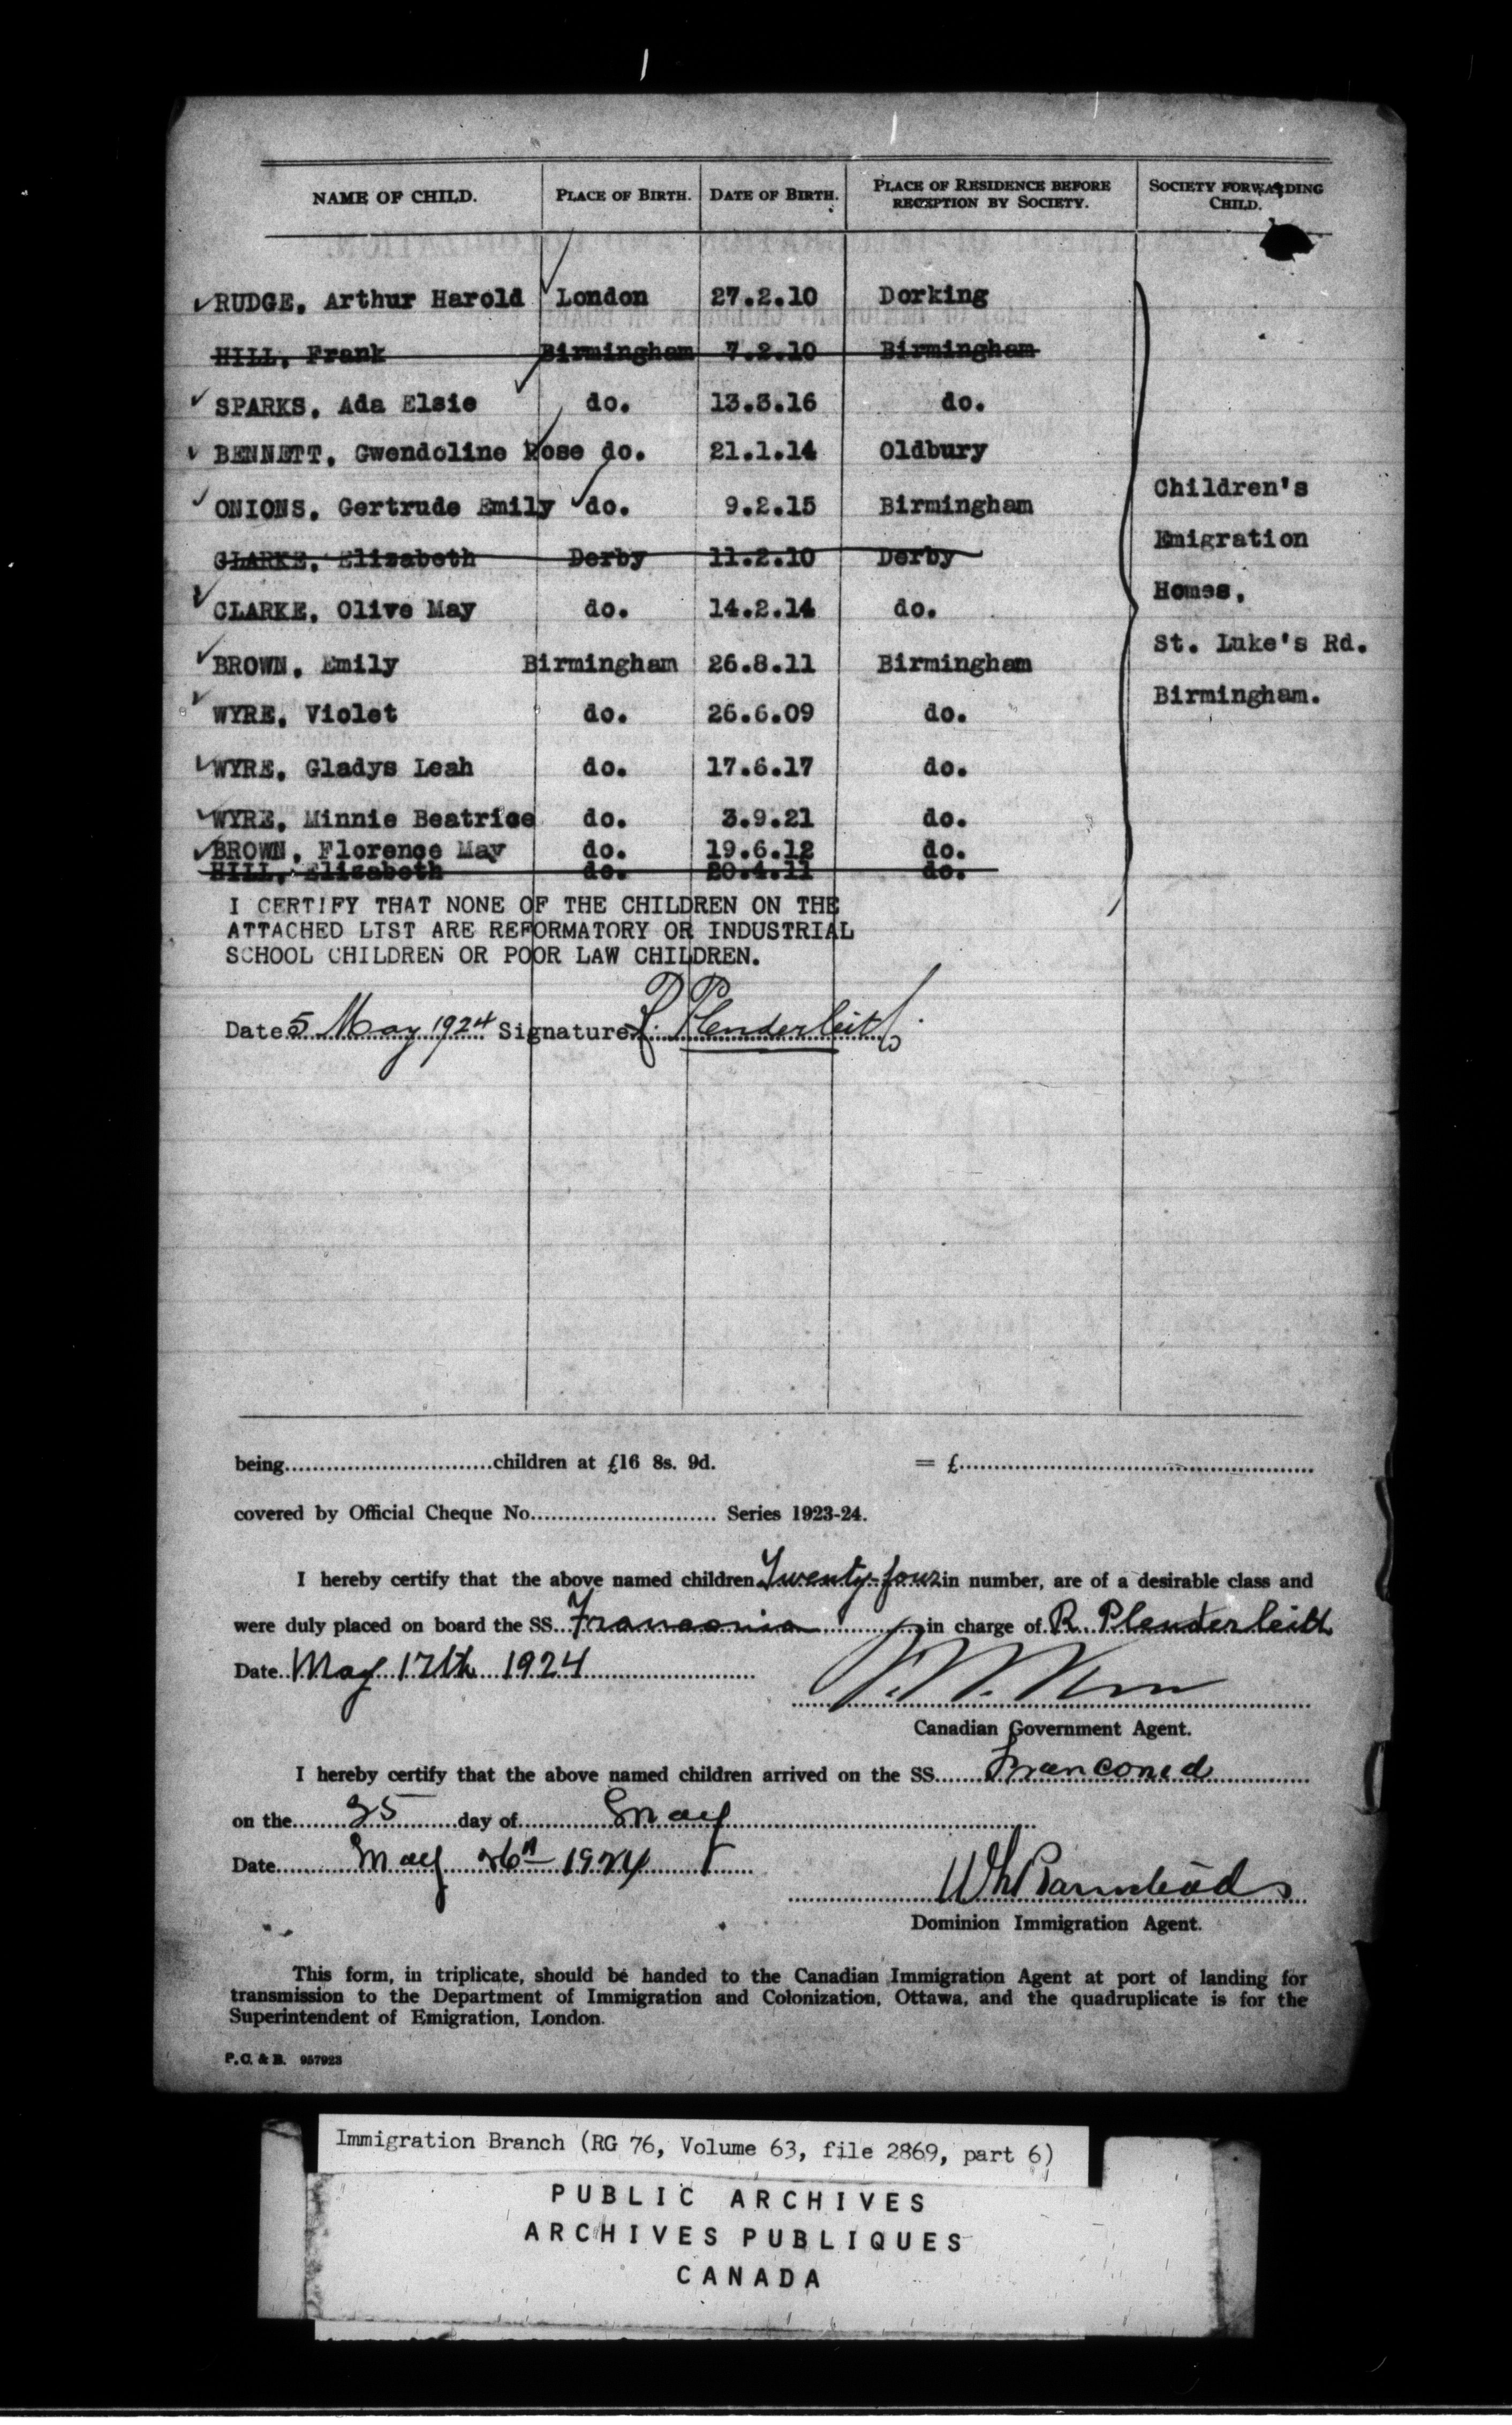 NAME OF CHILD. PLACE OF BIRTH. DATE OF BIRTH. PLACE OF RESIDENCE BEFORE RECEPTION BY SOCIETY. SOCIETY FORWARDING CHILD.
RUDGE, Arthur Harold London 27.2.10 Dorking
HILL, Frank Birmingham 7.2.10 Birmingham
SPARKS, Ada Elsie do. 13.3.16 do.
BENNETT, Gwendoline Rose do. 21.1.14 Oldbury
ONIONS, Gertrude Emily do. 9.2.15 Birmingham
CLARKE, Elizabeth Derby 11.2.10 Derby
CLARKE, Olive May do. 14.2.14 do.
BROWN, Emily Birmingham 26.8.11 Birmingham
WYRE, Violet do. 26.6.09 do.
WYRE, Gladys Leah do. 17.6.17 do.
WYRE, Minnie Beatrice do. 3.9.21 do.
BROWN, Florence May do. 19.6.12 do.
HILL, Elizabeth do. 20.4.11 do.
Children's
Emigration
Homes,
St. Luke's Rd.
Birmingham.
I CERTIFY THAT NONE OF THE CHILDREN ON THE
ATTACHED LIST ARE REFORMATORY OR INDUSTRIAL
SCHOOL CHILDREN OR POOR LAW CHILDREN.
Date 5 May 1924 Signature R. Plenderleith.
being..............................children at £16 8s. 9d. = £..............................
covered by Official Cheque No........................... Series 1923-24.
I hereby certify that the above named children Twenty-four in number, are of a desirable class and
were duly placed on board the SS. Franconia in charge of R. Plenderleith
Date May 17th 1924
Canadian Government Agent.
I hereby certify that the above named children arrived on the SS.
on the 25 day of May
Date May 26th 1924
Dominion Immigration Agent.
This form, in triplicate, should be handed to the Canadian Immigration Agent at port of landing for
transmission to the Department of Immigration and Colonization, Ottawa, and the quadruplicate is for the
Superintendent of Emigration, London.
P.C. & B. 957923
Immigration Branch (RG 76, Volume 63, file 2869, part 6)
PUBLIC ARCHIVES
ARCHIVES PUBLIQUES
CANADA